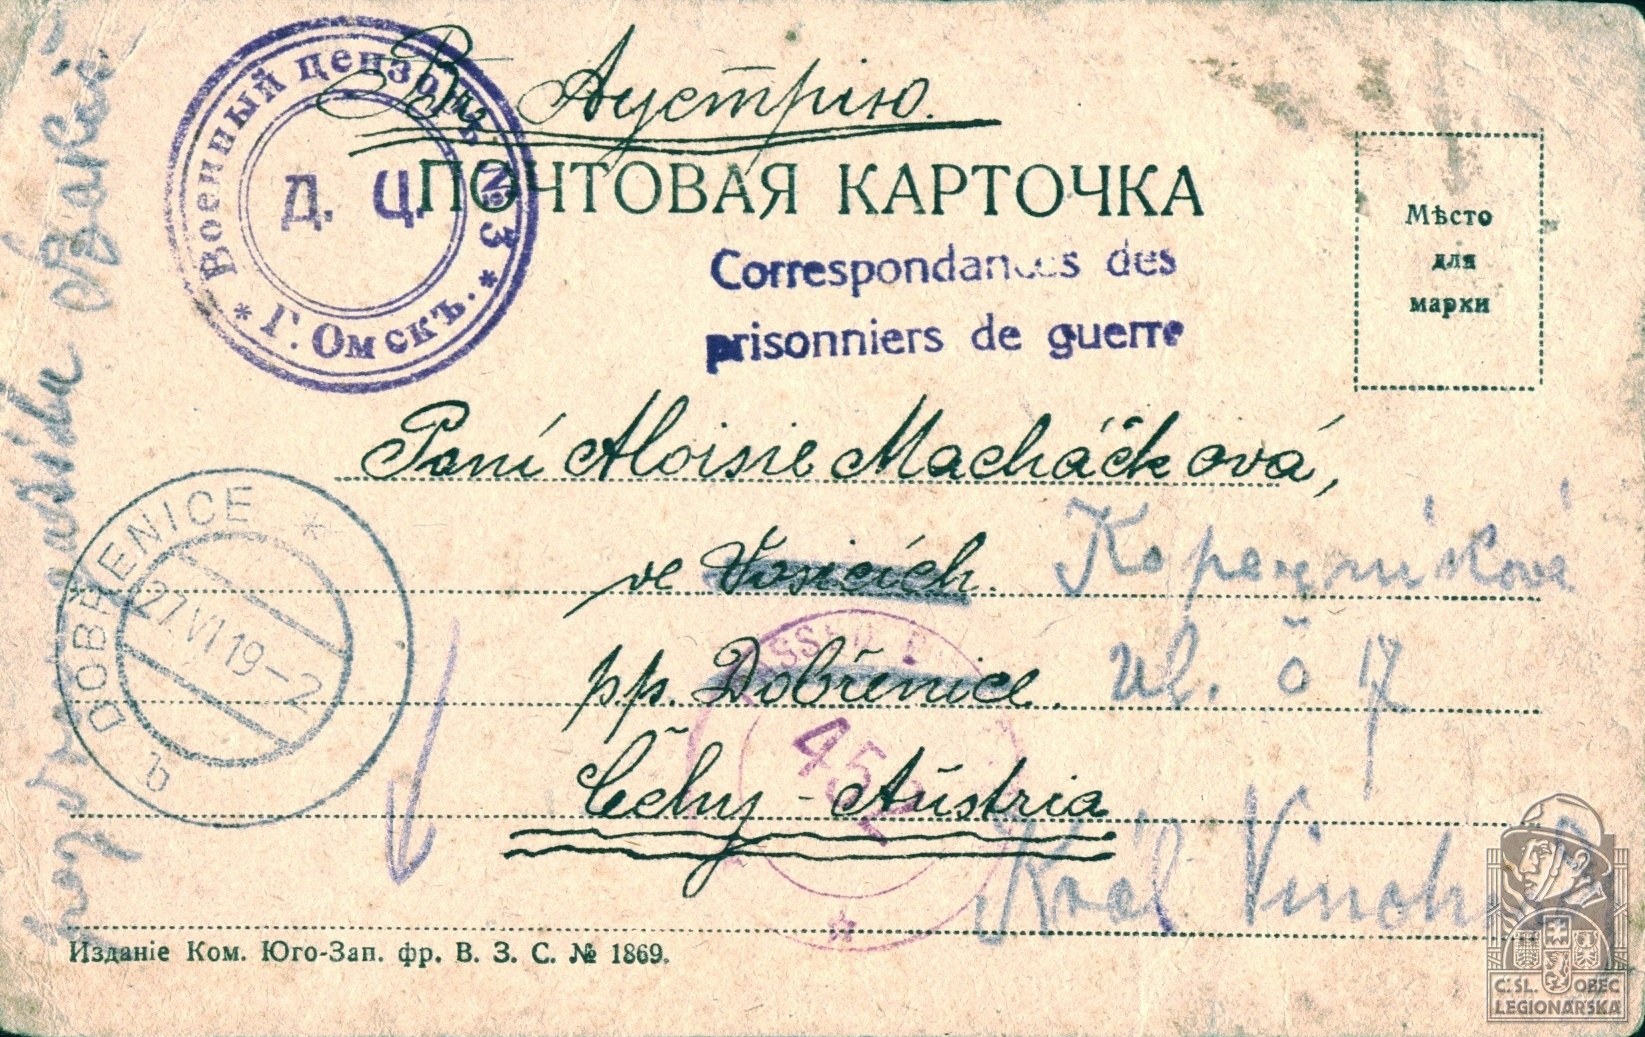 Въ Аустрію.
ПОЧТОВАЯ КАРТОЧКА
Военный цензоръ № 3
* Г. Омскъ. *
Д. Ц.
Correspondances des
prisonniers de guerre
Мѣсто
для
марки
Paní Aloisie Macháčková,
ve Vosicích.
pp. Dobřenice.
Čechy - Aústria
Koperníkova
ul. č 17
Král Vinohr
DOBŘENICE *
27.VI 19-2
b
PASSED
452
Изданіе Ком. Юго-Зап. фр. В. З. С. № 1869.
Č.SL. OBEC
LEGIONÁŘSKÁ